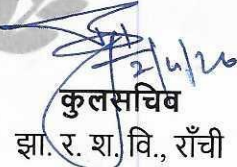 2/4/26
कुलसचिव
झा. र. श. वि., राँची